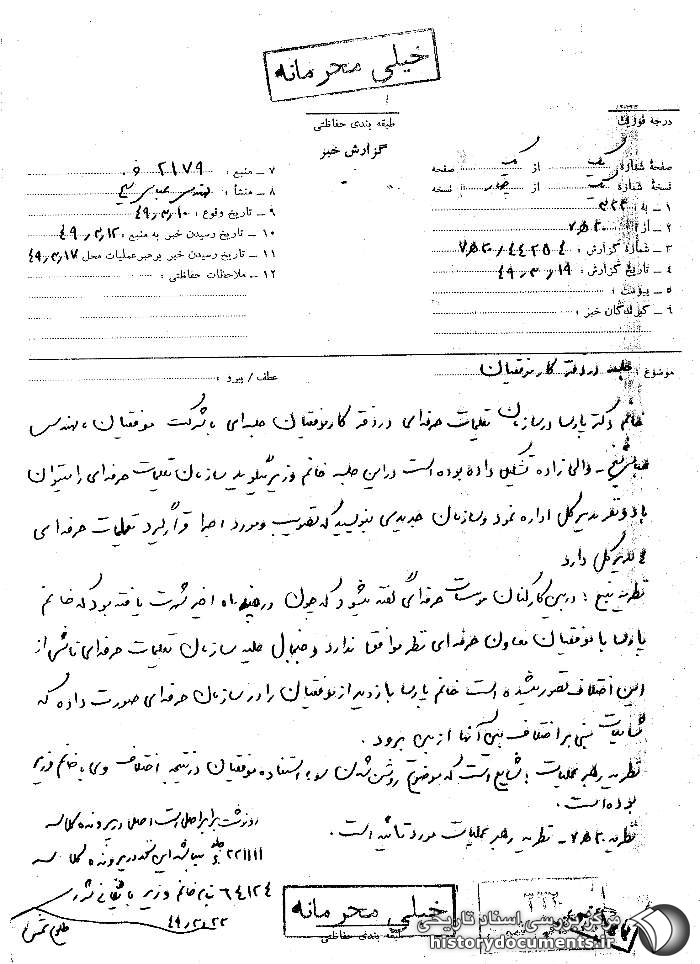 خیلی محرمانه
طبقه بندی حفاظتی
گزارش خبر
درجه فوریت
صفحهٔ شماره یک از یک صفحه
نسخهٔ شماره یک از چهار نسخه
۱ ــ به : ۳۲۲
۲ ــ از : ۷ﻫ۳۰
۳ ــ شمارهٔ گزارش : ۷ﻫ۳۰/۴۴۲۵۴
۴ ــ تاریخ گزارش : ۴۹٫۳٫۱۹
۵ ــ پیوست :
۶ ــ گیرندگان خبر :
۷ ــ منبع : ۲۱۷۹
۸ ــ منشأ : مهندس عباس
۹ ــ تاریخ وقوع : ۴۹٫۳٫۱۰
۱۰ ــ تاریخ رسیدن خبر به منبع : ۴۹٫۳٫۱۲
۱۱ ــ تاریخ رسیدن خبر برهبر عملیات محل ۴۹٫۳٫۱۷
۱۲ ــ ملاحظات حفاظتی :
موضوع : جلسه در دفتر کار موفقیان
عطف / پیرو :
خانم دکتر پارسا در سازمان تعلیمات حرفه‌ای در دفتر کار موفقیان جلسه‌ای با شرکت موفقیان، مهندس
ـ والی زاده تشکیل داده بوده است در این جلسه خانم وزیر میگوید سازمان تعلیمات حرفه‌ای را میتوان
با دو نفر مدیر کل اداره نمود و سازمان جدیدی بنویسید که تصویب و مورد اجرا قرار گیرد تعلیمات حرفه‌ای
۴ مدیر کل دارد
نظریه منبع : در بین کارکنان موسسات حرفه‌ای گفته میشود که چون در چند ماه اخیر شهرت یافته بود که خانم
پارسا با موفقیان معاون حرفه‌ای نظر موافق ندارد و جنجال علیه سازمان تعلیمات حرفه‌ای ناشی از
این اختلاف تصور میشده است خانم پارسا بازدید از موفقیان را در سازمان حرفه‌ای صورت داده که
شایعات مبنی بر اختلاف بین آنها از بین برود .
نظریه رهبر عملیات : شایع است که موضوع روشن شدن سوء استفاده موفقیان در نتیجه اختلاف وی با خانم وزیر
بوده است .
نظریه ۷ﻫ۳۰ ـ نظریه رهبر عملیات مورد تائید است .
رونوشت برابر اصل است اصل در پرونده کلاسه
۲۲۱۱۱۱ میباشد این نسخه در پرونده کلاسه
۶۴۱۲۴ بنام خانم وزیر بایگانی شود
۴۹٫۳٫۲۳
خیلی محرمانه
طبقه بندی حفاظتی
۳۲۲
مرکز بررسی اسناد تاریخی
historydocuments.ir